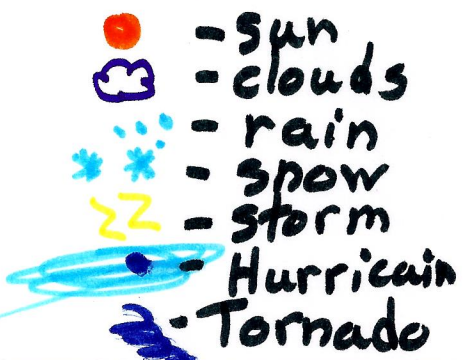 - sun
- clouds
- rain
- snow
- storm
- Hurricain
- Tornado